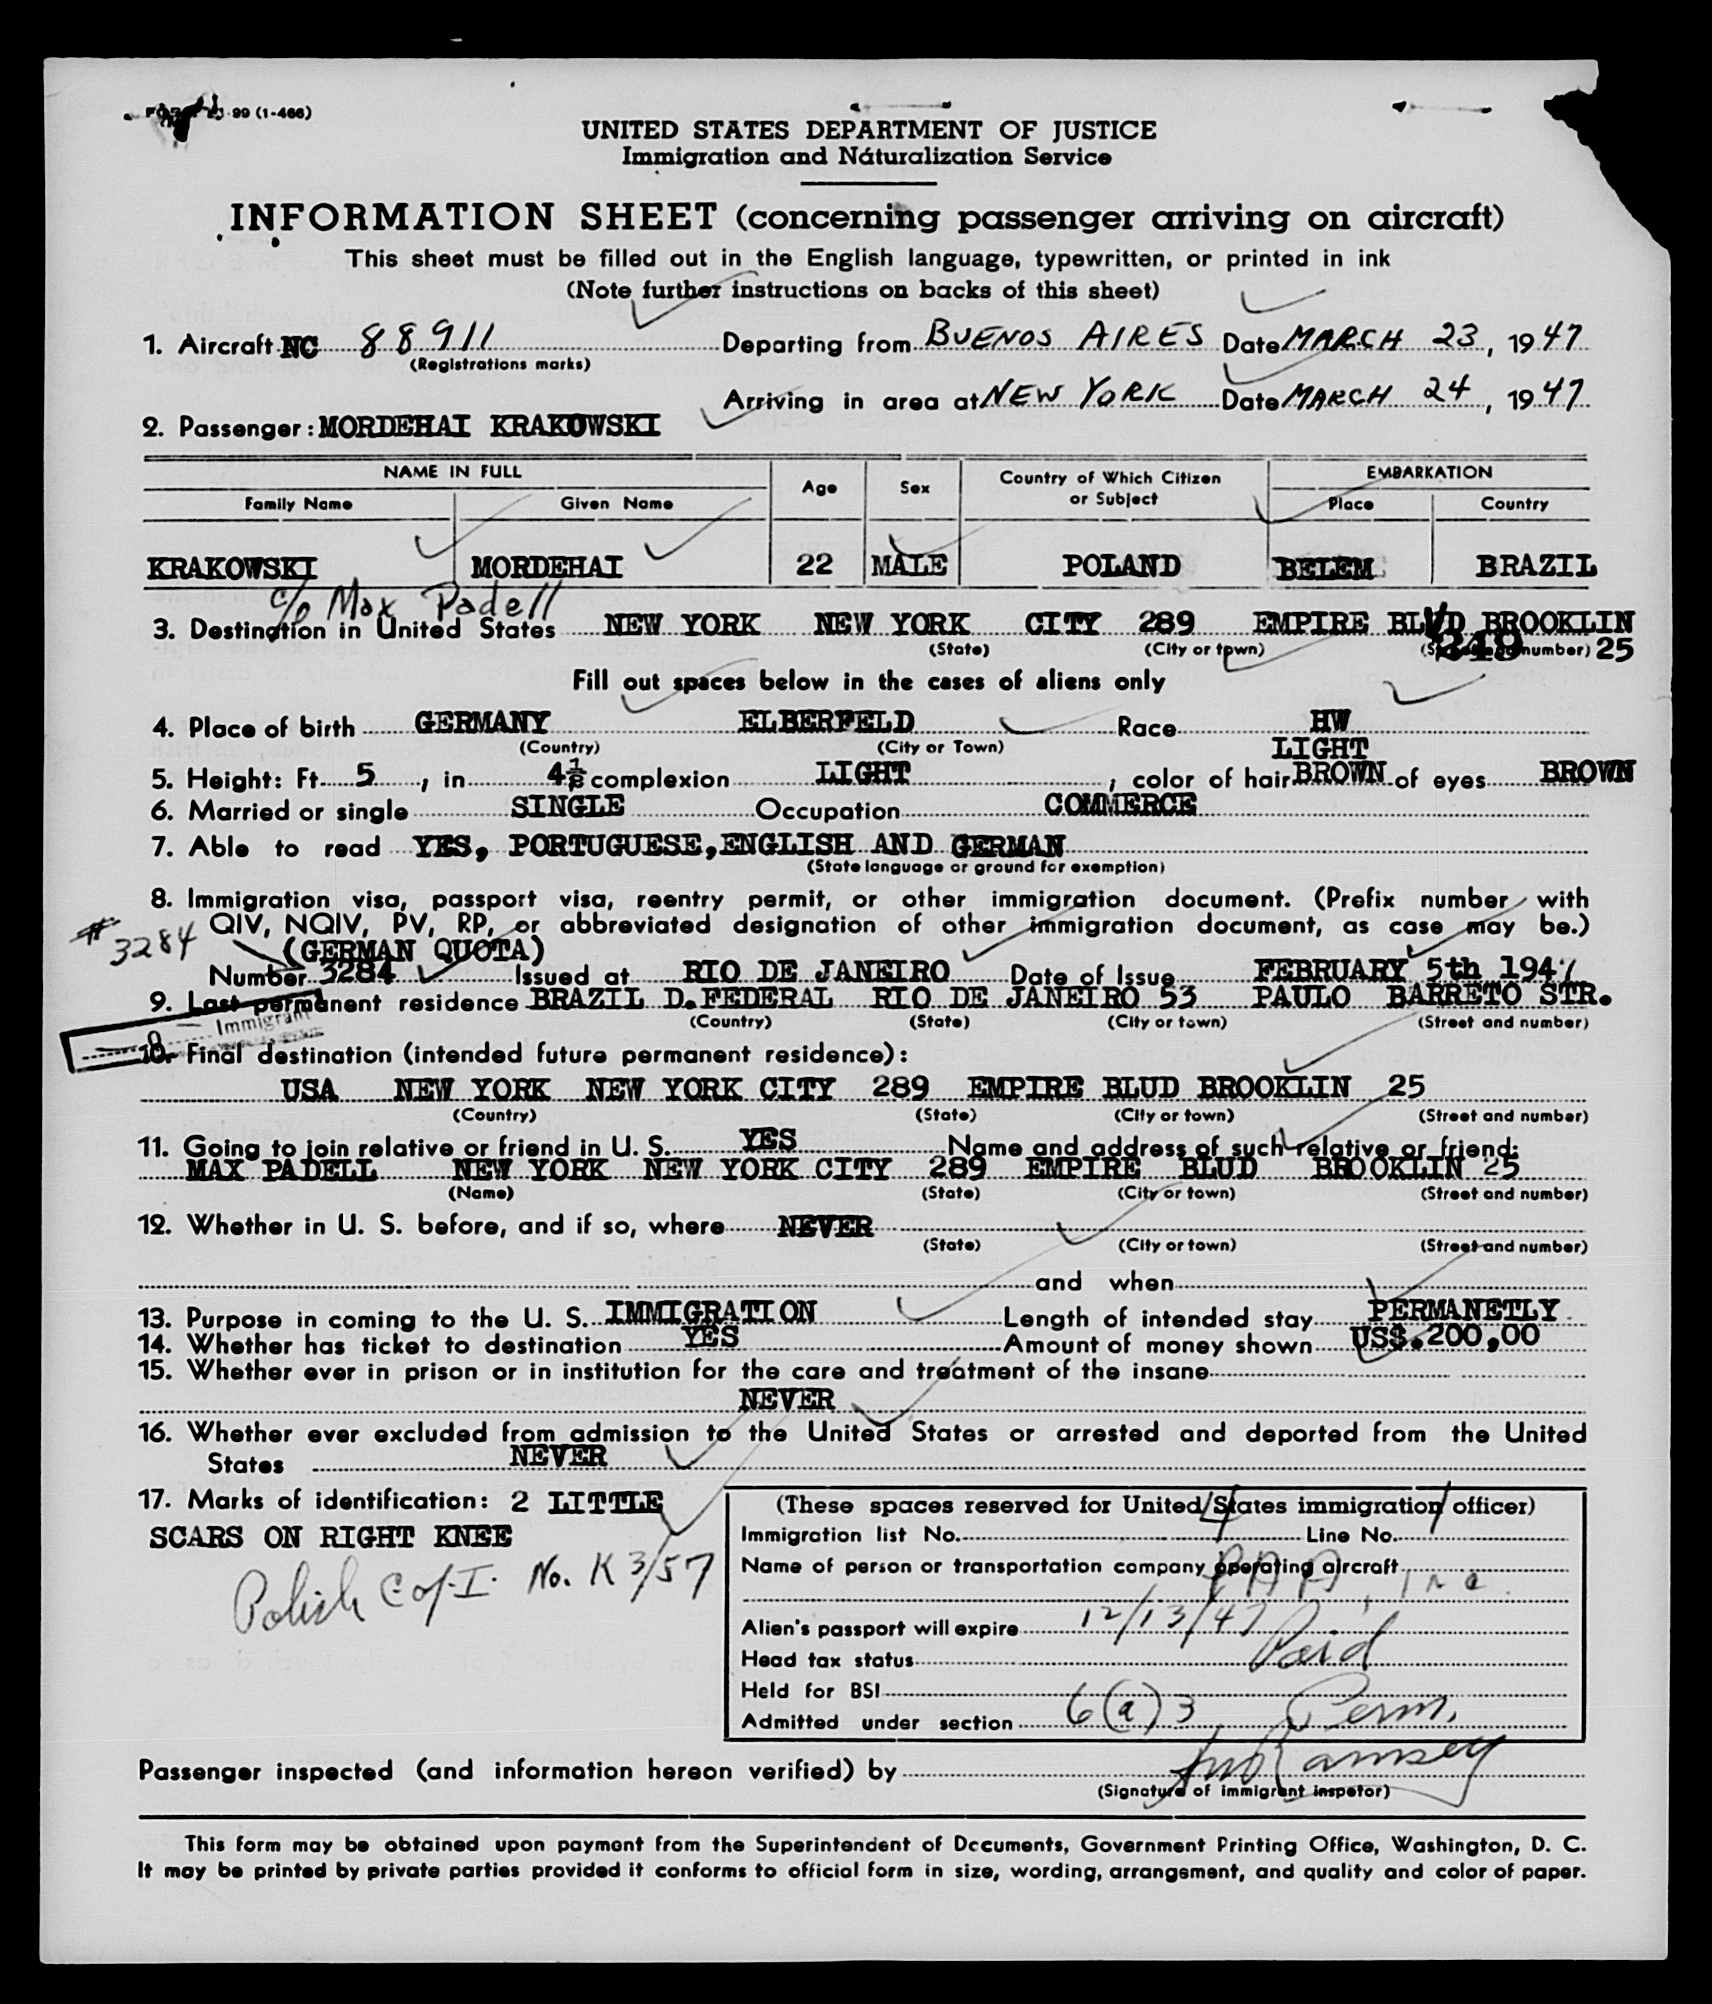 99 (1-466)
UNITED STATES DEPARTMENT OF JUSTICE
Immigration and Naturalization Service
INFORMATION SHEET (concerning passenger arriving on aircraft)
This sheet must be filled out in the English language, typewritten, or printed in ink
(Note further instructions on backs of this sheet)
1. Aircraft NC 88911 Departing from BUENOS AIRES Date MARCH 23, 1947
(Registrations marks)
Arriving in area at NEW YORK Date MARCH 24, 1947
2. Passenger: MORDEHAI KRAKOWSKI
NAME IN FULL Age Sex Country of Which Citizen or Subject EMBARKATION
Family Name Given Name Place Country
KRAKOWSKI MORDEHAI 22 MALE POLAND BELEM BRAZIL
c/o Max Padell
3. Destination in United States NEW YORK NEW YORK CITY 289 EMPIRE BLVD BROOKLIN
(State) (City or town) number) 25
Fill out spaces below in the cases of aliens only
4. Place of birth GERMANY ELBERFELD Race HW
(Country) (City or Town) LIGHT
5. Height: Ft. 5, in 4 1/8 complexion LIGHT; color of hair BROWN of eyes BROWN
6. Married or single SINGLE Occupation COMMERCE
7. Able to read YES, PORTUGUESE, ENGLISH AND GERMAN
(State language or ground for exemption)
8. Immigration visa, passport visa, reentry permit, or other immigration document. (Prefix number with
# 3284 QIV, NQIV, PV, RP, or abbreviated designation of other immigration document, as case may be.)
(GERMAN QUOTA)
Number 3284 Issued at RIO DE JANEIRO Date of Issue FEBRUARY 5th 1947
9. Last permanent residence BRAZIL D. FEDERAL RIO DE JANEIRO 53 PAULO BARRETO STR.
Immigrant (Country) (State) (City or town) (Street and number)
10. Final destination (intended future permanent residence):
USA NEW YORK NEW YORK CITY 289 EMPIRE BLUD BROOKLIN 25
(Country) (State) (City or town) (Street and number)
11. Going to join relative or friend in U. S. YES Name and address of such relative or friend:
MAX PADELL NEW YORK NEW YORK CITY 289 EMPIRE BLUD BROOKLIN 25
(Name) (State) (City or town) (Street and number)
12. Whether in U. S. before, and if so, where NEVER
(State) (City or town) (Street and number)
and when
13. Purpose in coming to the U. S. IMMIGRATION Length of intended stay PERMANETLY
14. Whether has ticket to destination YES Amount of money shown US$.200,00
15. Whether ever in prison or in institution for the care and treatment of the insane
NEVER
16. Whether ever excluded from admission to the United States or arrested and deported from the United
States NEVER
17. Marks of identification: 2 LITTLE
SCARS ON RIGHT KNEE
Polish C of I. No. K 3/57
(These spaces reserved for United States immigration officer)
Immigration list No. Line No.
Name of person or transportation company operating aircraft
PAA, Inc.
Alien's passport will expire 12/13/47
Head tax status Paid
Held for BSI
Admitted under section 6(a)3 Perm.
Passenger inspected (and information hereon verified) by Ramsey
(Signature of immigrant inspetor)
This form may be obtained upon payment from the Superintendent of Documents, Government Printing Office, Washington, D. C.
It may be printed by private parties provided it conforms to official form in size, wording, arrangement, and quality and color of paper.